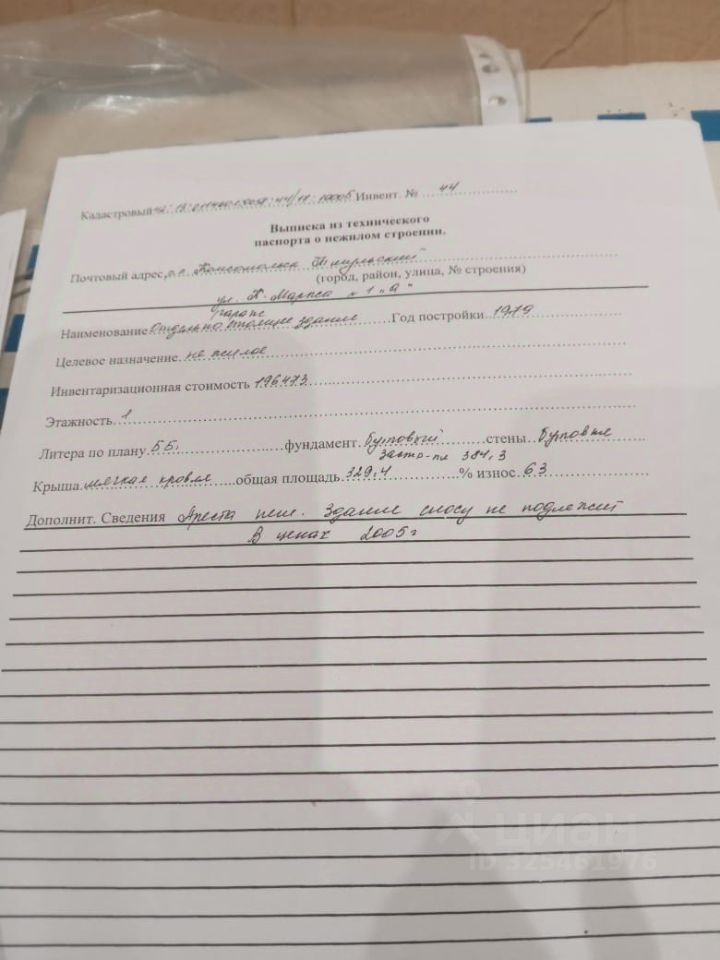 Кадастровый Инвент. № 44
Выписка из технического
паспорта о нежилом строении.
Почтовый адрес
(город, район, улица, № строения)
ул. К. Маркса 1 "а"
гараж
Наименование отдельно стоящее здание Год постройки 1979
Целевое назначение не жилое
Инвентаризационная стоимость 196473
Этажность 1
Литера по плану ББ, фундамент бутовый стены бутовые
384,3
Крыша мягкая кровля общая площадь 329,4 % износ 63
Дополнит. Сведения Ареста нет. Здание сносу не подлежит
В ценах 2005 г
циан
ID 325461976